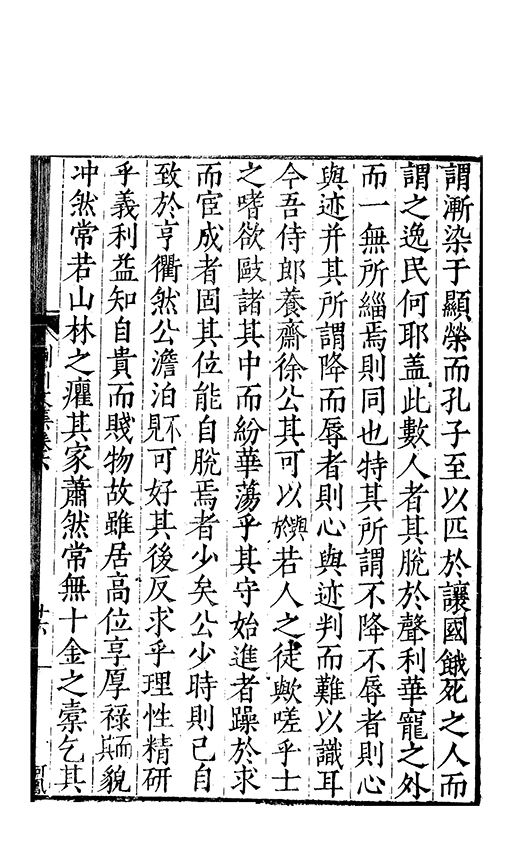 謂漸染于顯榮而孔子至以匹於讓國餓死之人而
謂之逸民何耶蓋此數人者其脫於聲利華寵之外
而一無所緇焉則同也特其所謂不降不辱者則心
與迹并其所謂降而辱者則心與迹判而難以識耳
今吾侍郎養齋徐公其可以與於若人之徒歟嗟乎士
之嗜欲敺諸其中而紛華蕩乎其守始進者躁於求
而宦成者固其位能自脫焉者少矣公少時則已自
致於亨衢然公澹泊不見可好其後反求乎理性精研
乎義利益知自貴而賤物故雖居高位享厚祿而貌
冲然常若山林之癯其家蕭然常無十金之橐乞其
荆川文集卷
十六